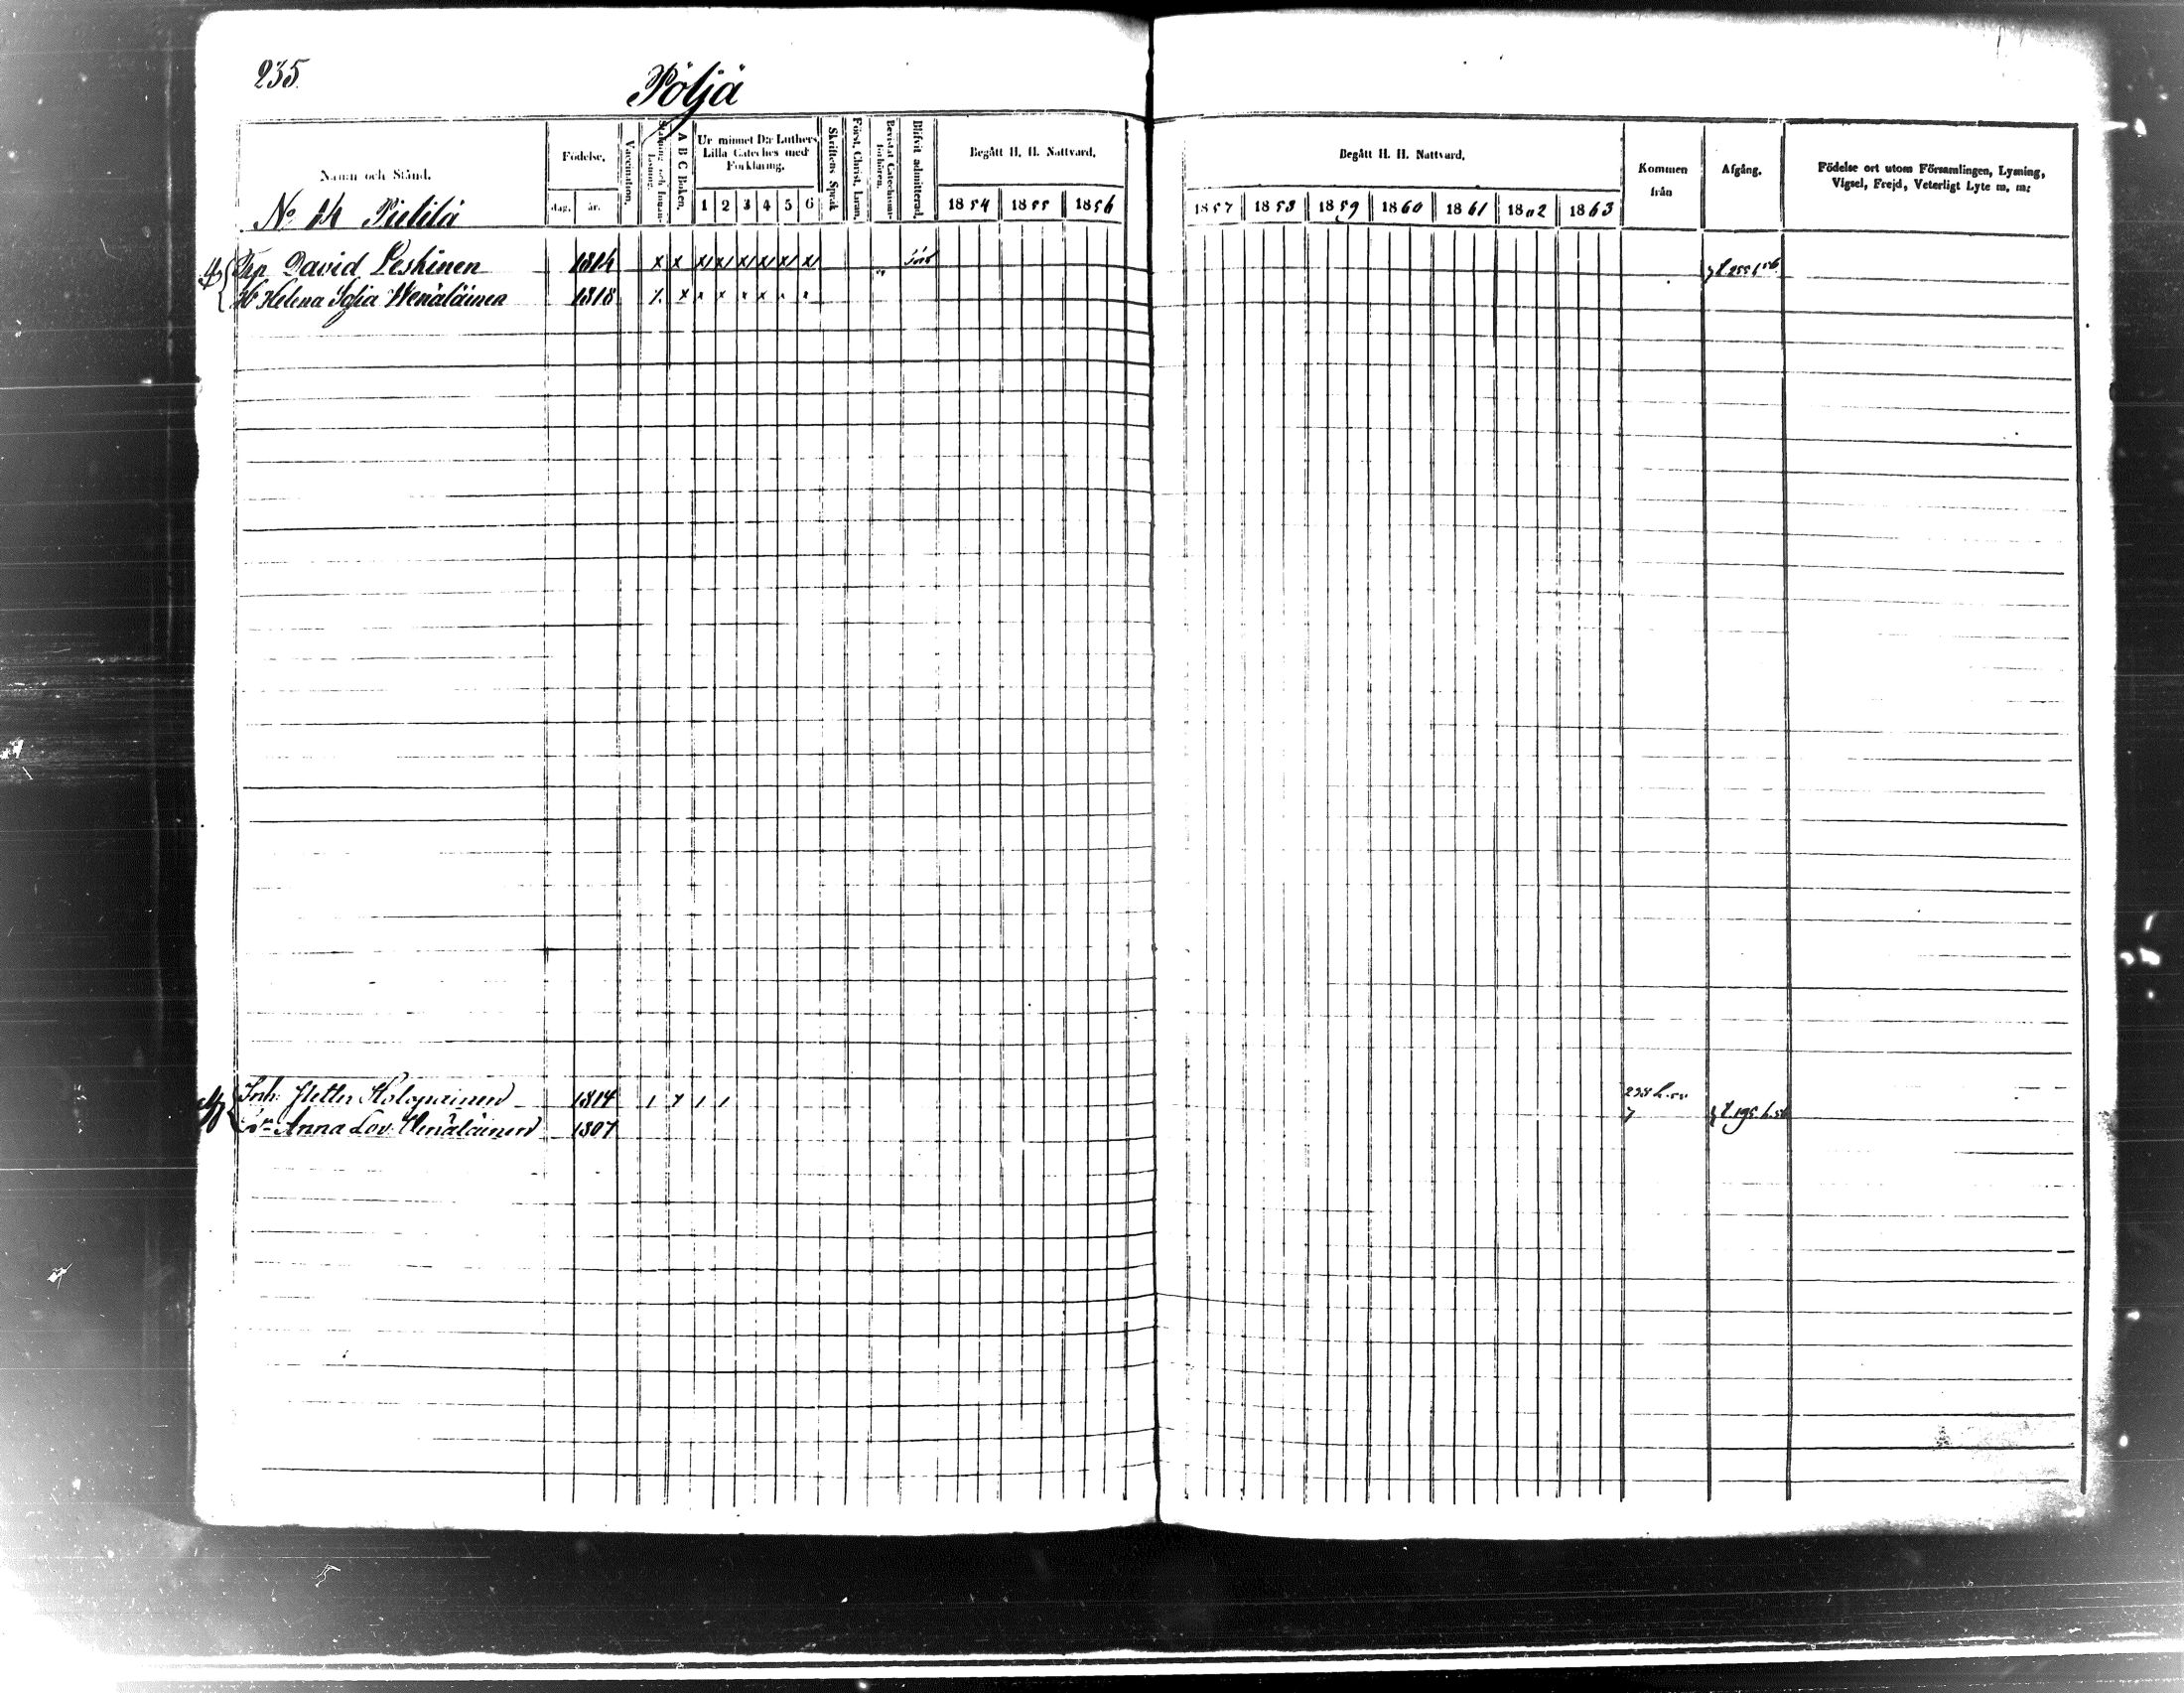 235.
Pöljä
Namn och Stånd.
Födelse,
dag.
år.
Vaccination.
A B C Boken.
Ur minnet D:r Luthers
Lilla Cateches med
Förklaring.
1 2 3 4 5 6
Skriftens Språk
Först. Christ. Läran.
Bevistat Catechismi-
förhören.
Blifvit admitterad.
Begått H. H. Nattvard.
1854 1855 1856
Begått H. H. Nattvard.
1857 1858 1859 1860 1861 1862 1863
Kommen
från
Afgång.
Födelse ort utom Församlingen, Lysning,
Vigsel, Frejd, Veterligt Lyte m. m:
No 14
David Leskinen 1814 x x x x x x x x
H Helena Sofia Wenäläinen 1818 x x x x x x x x
Inh: Petter Holopainen 1814
Anna Lov. Wenäläinen 1807